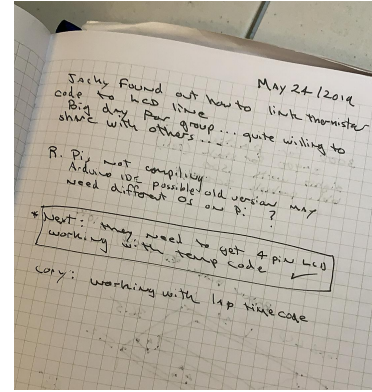 May 24/2019
Jacky found out how to link thermistor
code to LCD line
Big day for group... quite willing to
share with others...
R. Pi, not compiling
Arduino IDE possible old version may
need different OS on Pi ?
* Next: they need to get 4 pin LCD
working with temp code ✓
Cory: working with lap timecode